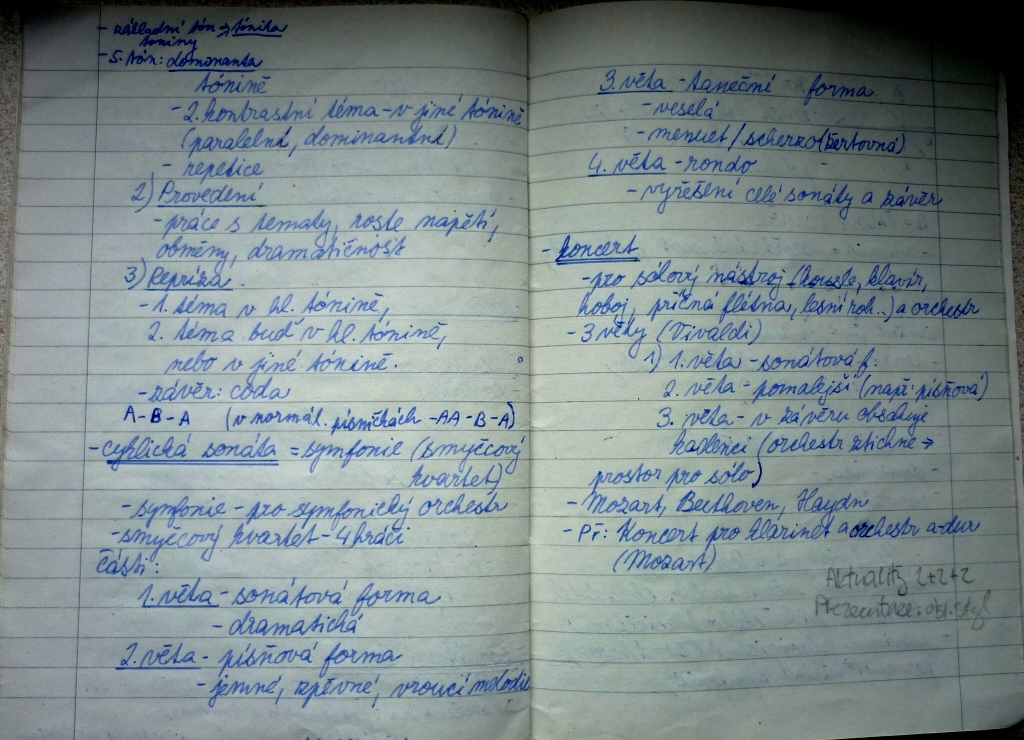 - základní tón → tónika
tóniny
- 5. tón: dominanta
tónině
- 2. kontrastní téma - v jiné tónině
(paralelní, dominantní)
- repetice
2) Provedení
- práce s tematy, roste napětí,
obměny, dramatičnost
3) Repríza.
- 1. téma v hl. tónině,
2. téma buď v hl. tónině,
nebo v jiné tónině.
- závěr: coda
A - B - A (v normál. písničkách - AA - B - A)
- cyklická sonáta = symfonie (smyčcový
kvartet)
- symfonie - pro symfonický orchestr
- smyčcový kvartet - 4 hráči
části:
1. věta - sonátová forma
- dramatická
2. věta - písňová forma
- jemné, zpěvné, vroucí melodie
3. věta - taneční forma
- veselá
- menuet / scherzo (žertovná)
4. věta - rondo
- vyřešení celé sonáty a závěr
- koncert
- pro sólový nástroj (housle, klavír,
hoboj, příčná flétna, lesní roh..) a orchestr
- 3 věty (Vivaldi)
1) 1. věta - sonátová f.
2. věta - pomalejší (např. písňová)
3. věta - v závěru obsahuje
kadenci (orchestr ztichne →
prostor pro sólo)
- Mozart, Beethoven, Haydn
- Př: Koncert pro klarinet a orchestr a-dur
(Mozart)
Aktuality 2+2+2
Prezentace: